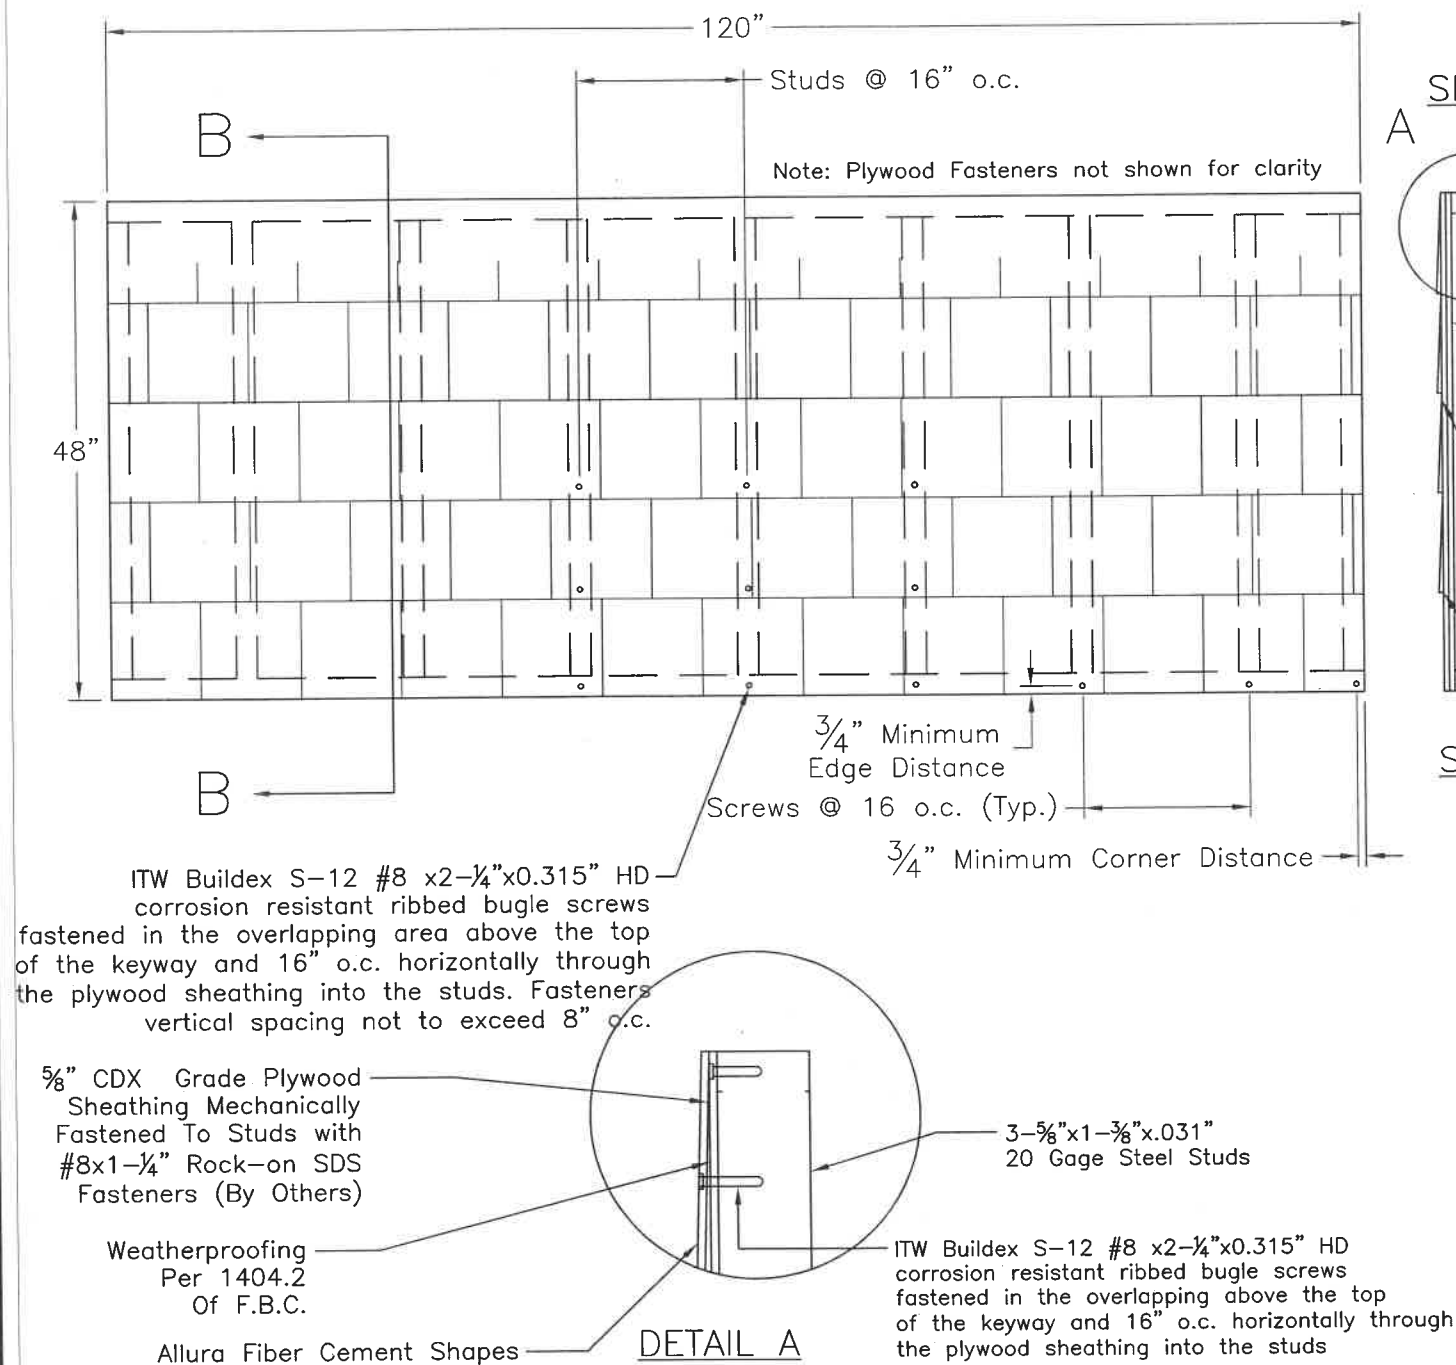 120"
Studs @ 16" o.c.
B
A
Note: Plywood Fasteners not shown for clarity
48"
3/4" Minimum
Edge Distance
B
Screws @ 16 o.c. (Typ.)
3/4" Minimum Corner Distance
ITW Buildex S-12 #8 x2-1/4"x0.315" HD
corrosion resistant ribbed bugle screws
fastened in the overlapping area above the top
of the keyway and 16" o.c. horizontally through
the plywood sheathing into the studs. Fasteners
vertical spacing not to exceed 8" o.c.
5/8" CDX Grade Plywood
Sheathing Mechanically
Fastened To Studs with
#8x1-1/4" Rock-on SDS
Fasteners (By Others)
3-5/8"x1-3/8"x.031"
20 Gage Steel Studs
Weatherproofing
Per 1404.2
Of F.B.C.
ITW Buildex S-12 #8 x2-1/4"x0.315" HD
corrosion resistant ribbed bugle screws
fastened in the overlapping above the top
of the keyway and 16" o.c. horizontally through
the plywood sheathing into the studs
Allura Fiber Cement Shapes
DETAIL A